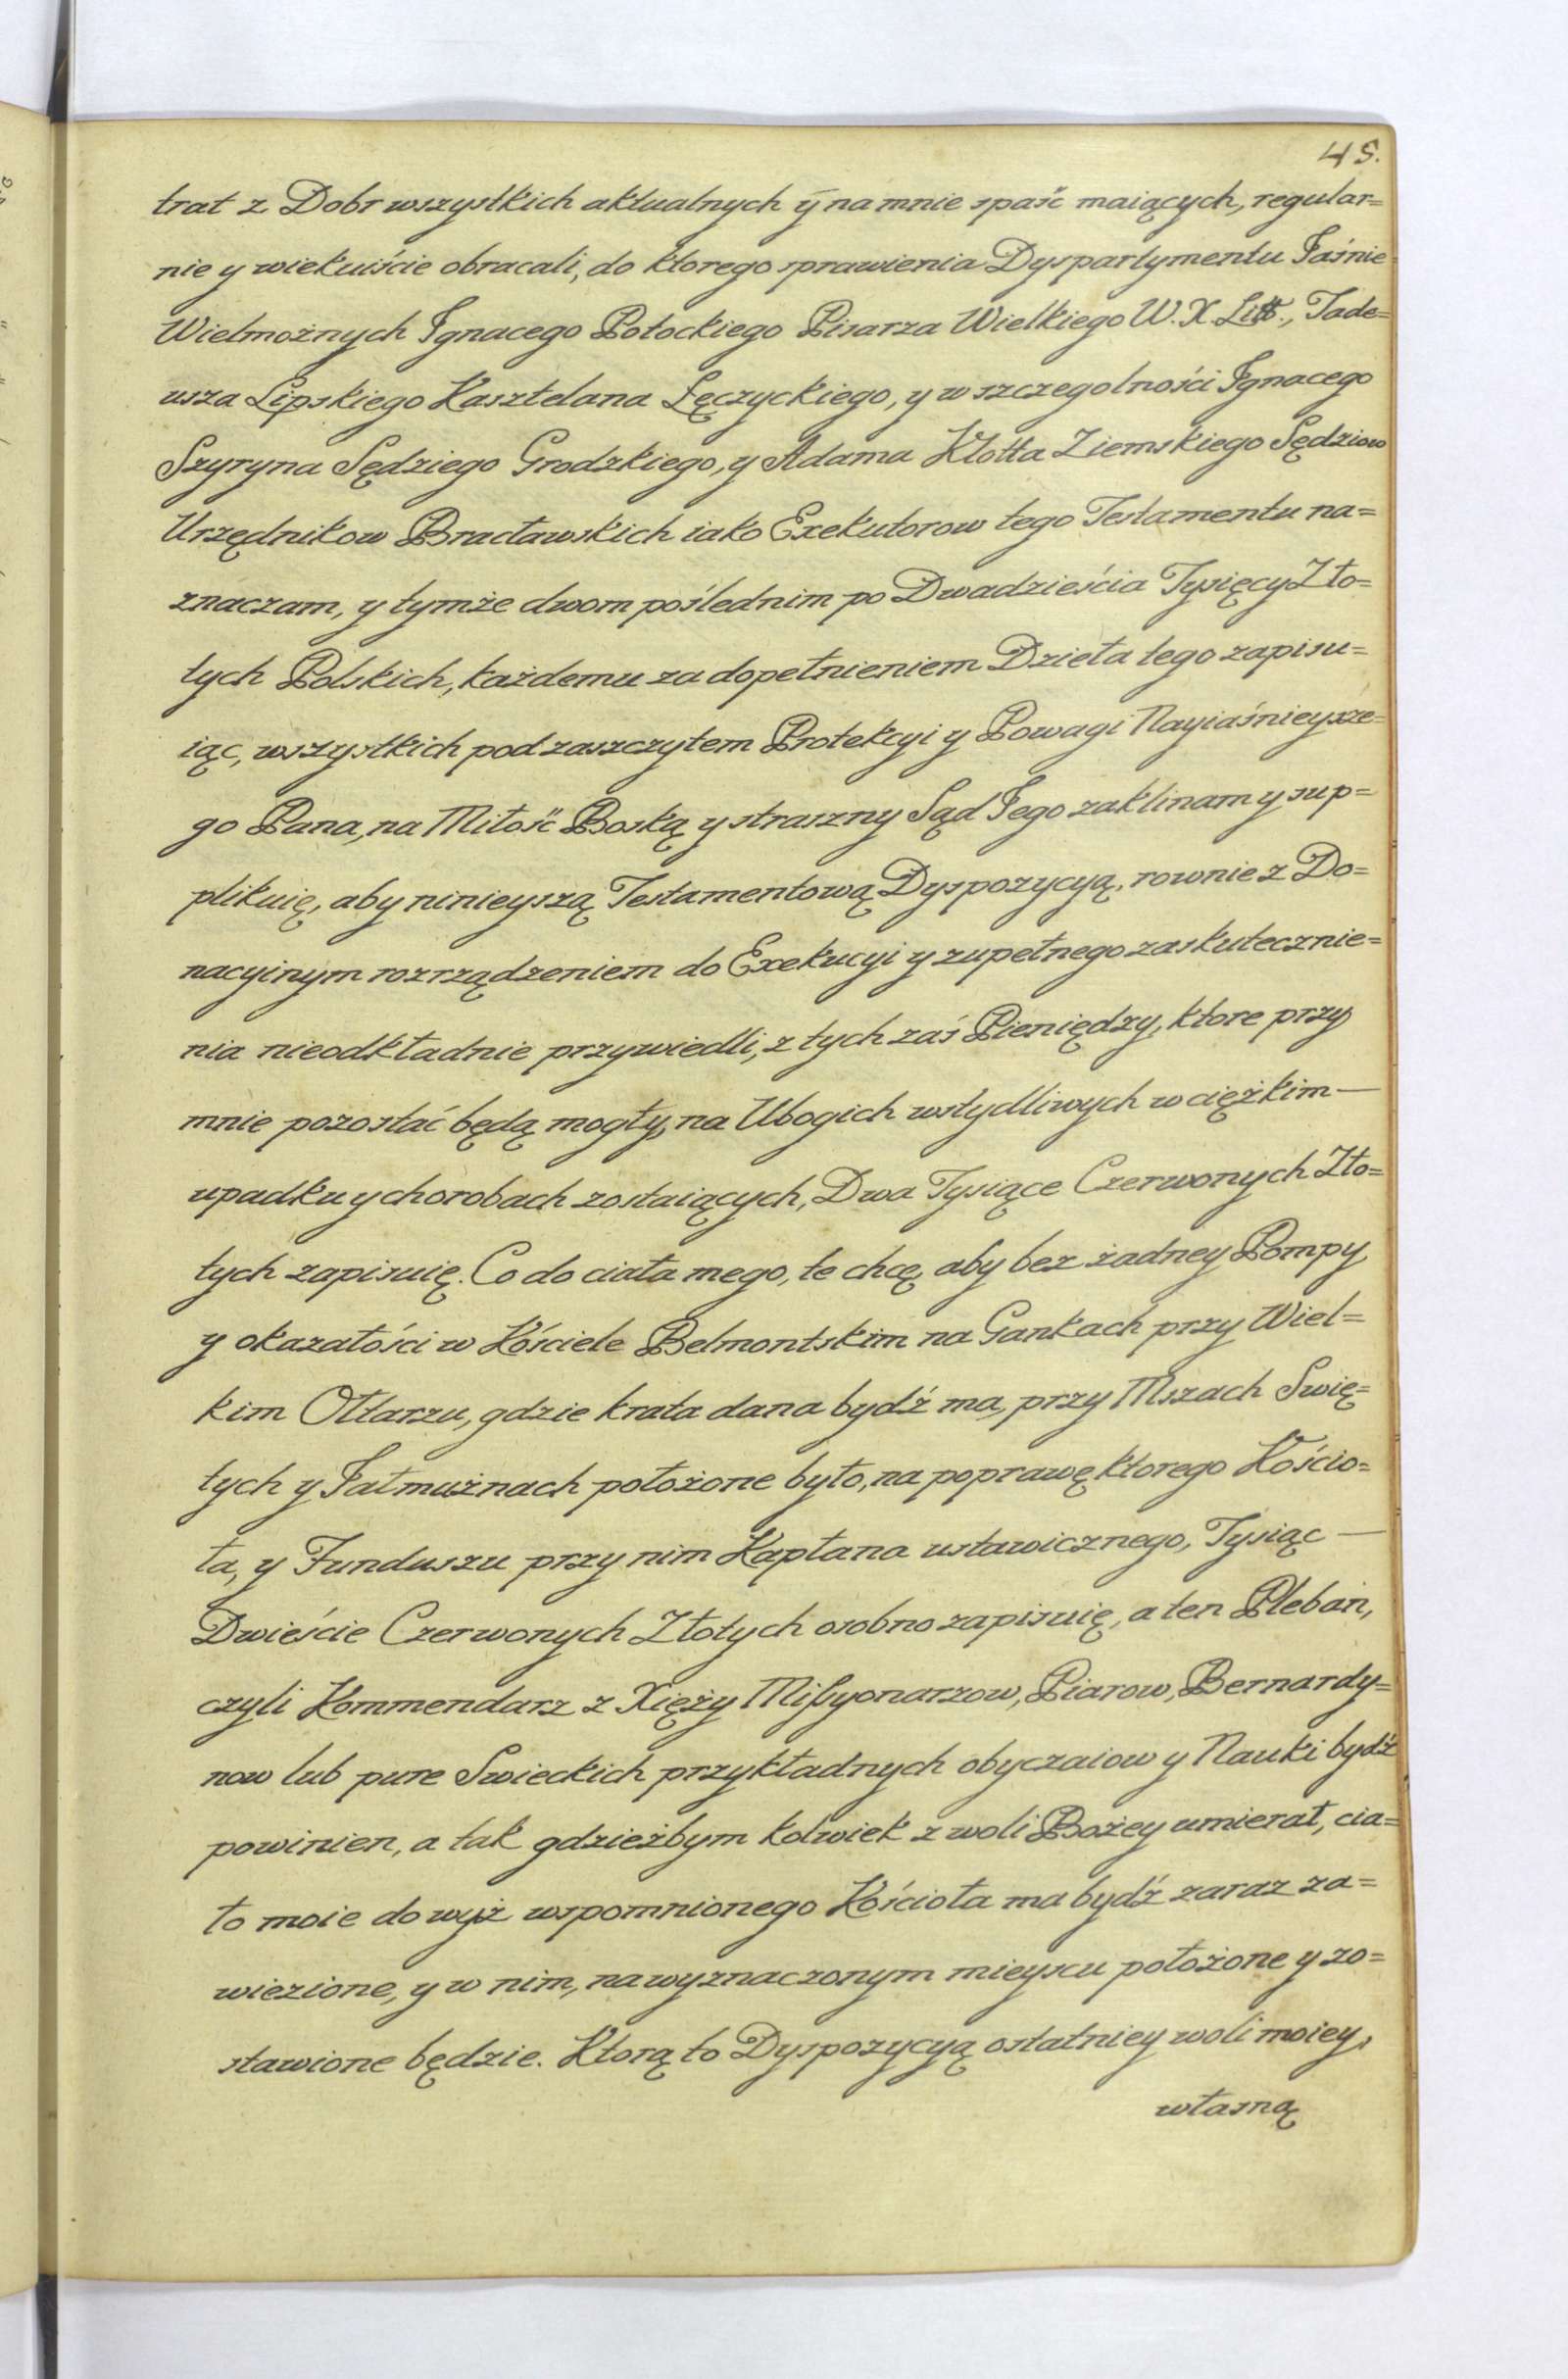 45.
trat z Dobr wszystkich aktualnych ÿ na mnie spaść maiących, regular=
nie y wiekuiście obracali, do ktorego sprawienia Dyspartymentu Jaśnie
Wielmożnych Ignacego Potockiego Pisarza Wielkiego W. X. Litt., Tade=
usza Lipskiego Kasztelana Łęczyckiego, y w szczegolności Ignacego
Szyryna Sędziego Grodzkiego, y Adama Kłotta Ziemskiego Sędziow
Urzędnikow Bracławskich iako Exekutorow tego Testamentu na=
znaczam, y tymże dwom poślednim po Dwadzieścia Tysięcy Zło=
tych Polskich, każdemu za dopełnieniem Dzieła tego zapisu=
iąc, wszystkich pod zaszczytem Protekcyi y Powagi Nayiaśnieysze=
go Pana, na Miłość Boską y straszny Sąd Jego zaklinam y sup=
plikuię, aby ninieyszą Testamentową Dyspozycyą, rownie z Do=
nacyinym rozrządzeniem do Exekucyi y zupełnego zaskutecznie=
nia nieodkładnie przywiedli, z tych zaś Pieniędzy, ktore przy
mnie pozostać będą mogły, na Ubogich wstydliwych w ciężkim —
upadku y chorobach zostaiących, Dwa Tysiące Czerwonych Zło=
tych zapisuię. Co do ciała mego, te chcę, aby bez żadney Pompy
y okazałości w Kościele Belmontskim na Gankach przy Wiel=
kim Ołtarzu, gdzie krata dana bydź ma, przy Mszach Swię=
tych y Jałmużnach położone było, na poprawę ktorego Kościo=
ła, y Funduszu przy nim Kapłana ustawicznego, Tysiąc —
Dwieście Czerwonych Złotych osobno zapisuię, a ten Pleban,
czyli Kommendarz z Xięży Missyonarzow, Piarow, Bernardy=
now lub pure Swieckich przykładnych obyczaiow y Nauki bydź
powinien, a tak gdzieżbym kolwiek z woli Bożey umierał, cia=
ło moie do wyż wspomnionego Kościoła ma bydź zaraz za=
wiezione, y w nim, na wyznaczonym mieyscu położone y zo=
stawione będzie. Ktorą to Dyspozycyą ostatniey woli moiey,
własną